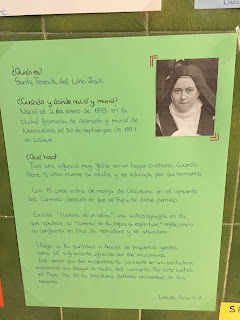 ¿Quién es?
Santa Teresita del Niño Jesús
¿Cuándo y dónde nació y murió?
Nació el 2 de enero de 1873 en la
ciudad francesa de Alençon y murió de
tuberculosis el 30 de septiembre de 1897
en Lisieux.
¿Qué hizo?
Tuvo una infancia muy feliz en un hogar cristiano. Cuando
tiene 5 años muere su madre y es educada por su hermana.
Con 15 años entra de monja de Clausura en el convento
del Carmelo después de que el Papa le diese permiso.
Escribe "Historia de un alma", una autobiografía en la
que aparece su "camino de la infancia espiritual" reflejando
su confianza en Dios, la sencillez y el abandono.
Llegó a la santidad a través de pequeños gestos,
como el sufrimiento ofrecido por las misiones.
Ese amor por los misioneros la convierte en una verdadera
misionera sin llegar a salir del convento. Por este motivo
el Papa Pío XI la proclama patrona universal de las
misiones.